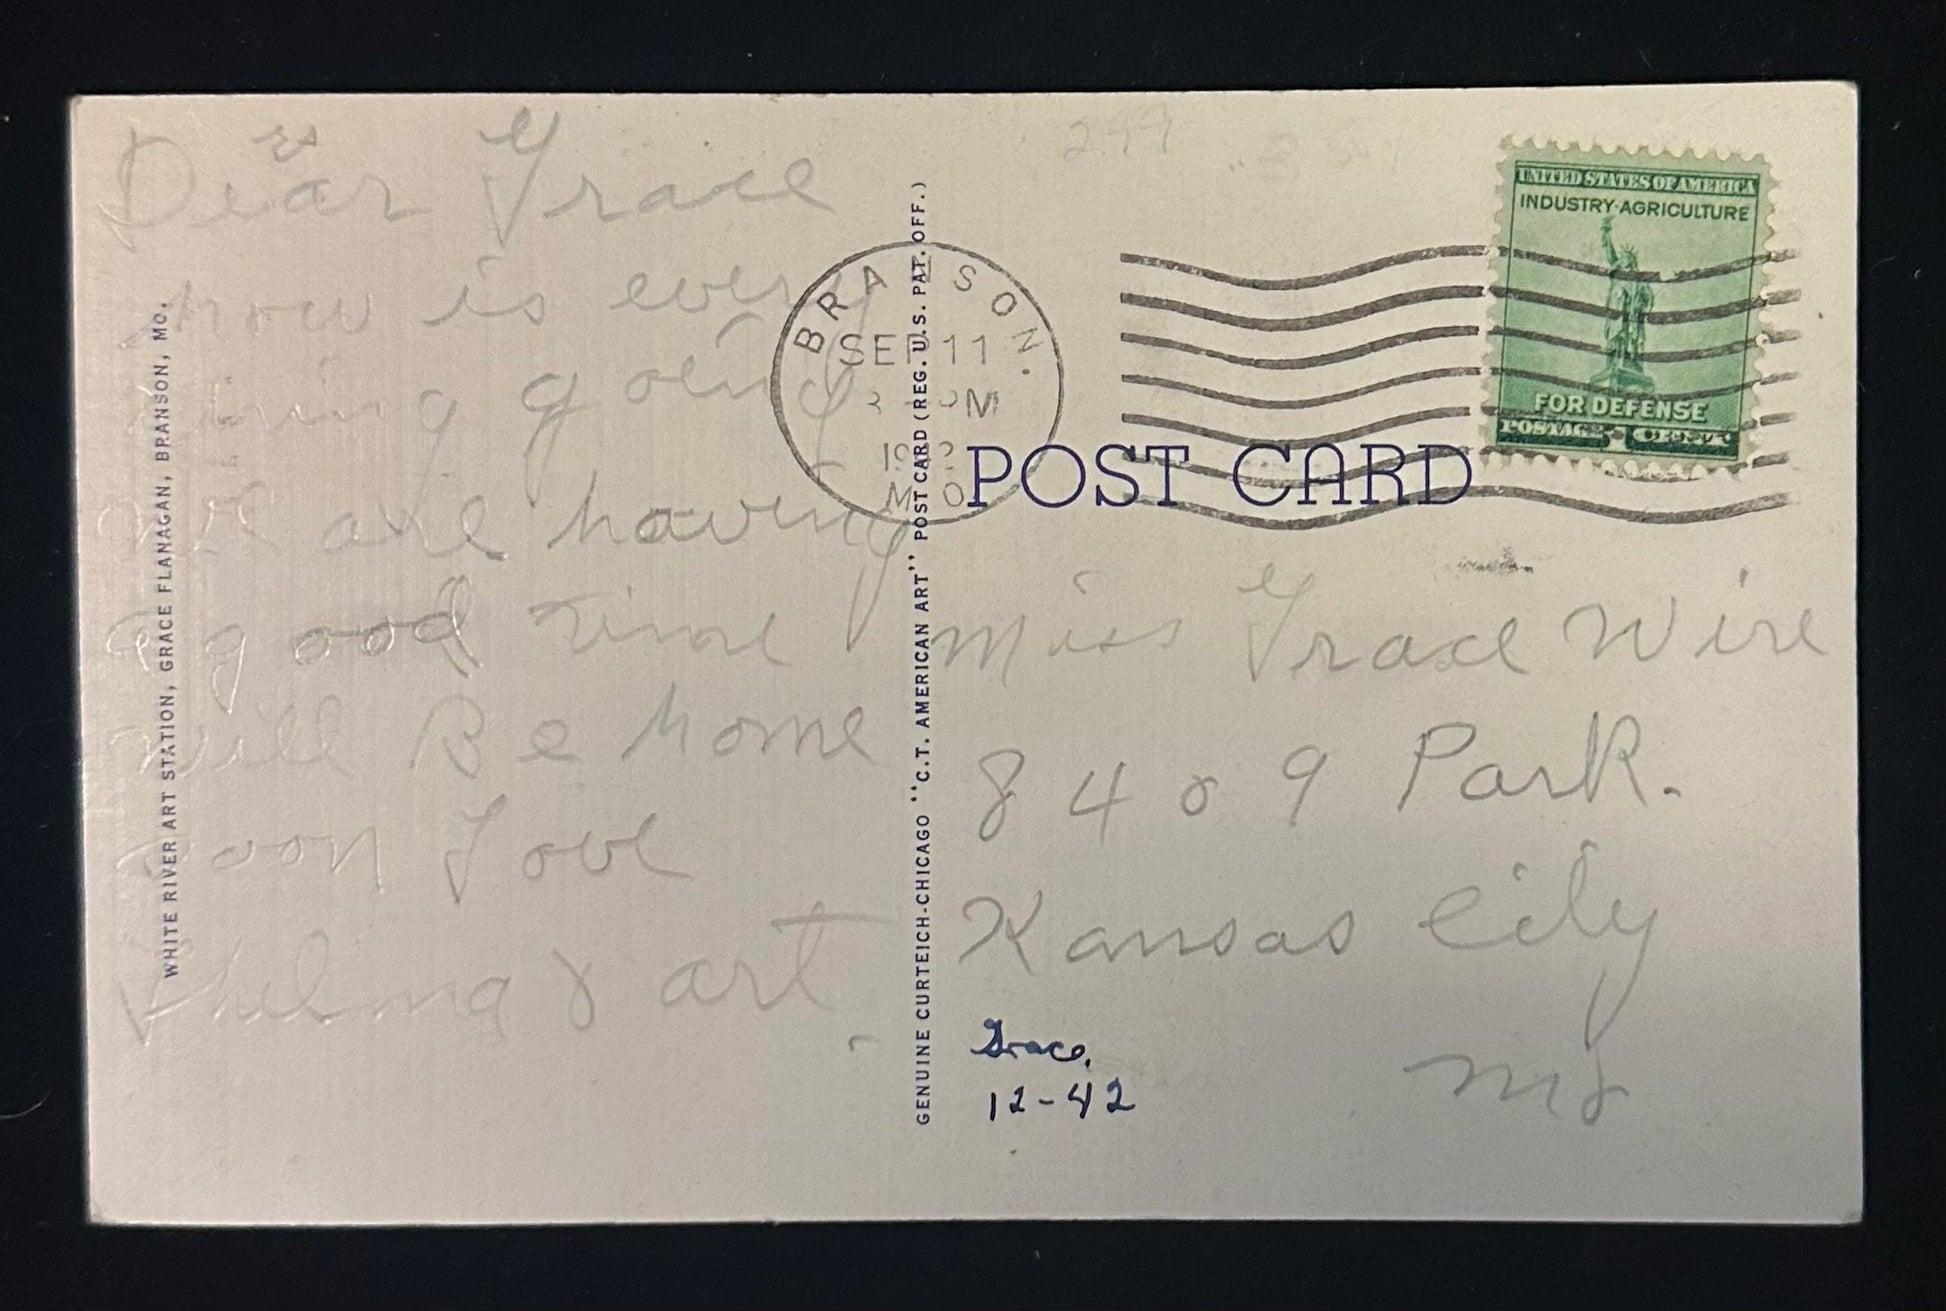 Dear Grace
how is every
thing going
We are having
a good time
will Be home
soon Love
& art
WHITE RIVER ART STATION, GRACE FLANAGAN, BRANSON, MO.
GENUINE CURTEICH-CHICAGO "C.T. AMERICAN ART" POST CARD (REG. U.S. PAT. OFF.)
BRANSON
SEP 11
M
MO.
UNITED STATES OF AMERICA
INDUSTRY·AGRICULTURE
FOR DEFENSE
POSTAGE 1 CENT
POST CARD
299
Miss Grace Wire
8409 Park.
Kansas City
Mo
Grace.
12-42